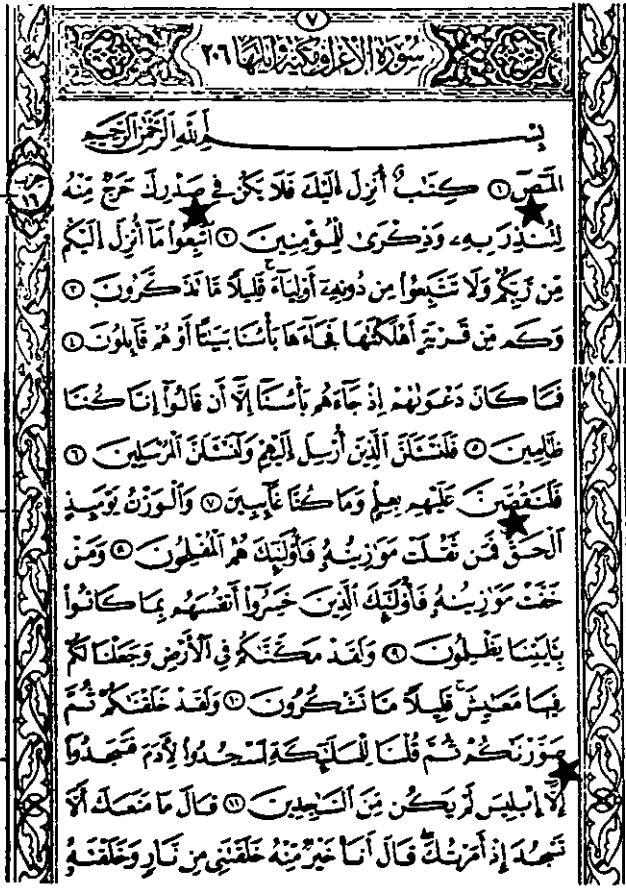 ٧
سُورَةُ الأَعْرَافِ مَكِّيَّةٌ وَآيَاتُهَا ٢٠٦
بِسْمِ اللَّهِ الرَّحْمَٰنِ الرَّحِيمِ
حزب ١٦
الٓمٓصٓ ١ كِتَٰبٌ أُنزِلَ إِلَيْكَ فَلَا يَكُن فِي صَدْرِكَ حَرَجٌ مِّنْهُ
لِتُنذِرَ بِهِۦ وَذِكْرَىٰ لِلْمُؤْمِنِينَ ٢ ٱتَّبِعُوا۟ مَآ أُنزِلَ إِلَيْكُم
مِّن رَّبِّكُمْ وَلَا تَتَّبِعُوا۟ مِن دُونِهِۦٓ أَوْلِيَآءَ ۗ قَلِيلًا مَّا تَذَكَّرُونَ ٣
وَكَم مِّن قَرْيَةٍ أَهْلَكْنَٰهَا فَجَآءَهَا بَأْسُنَا بَيَٰتًا أَوْ هُمْ قَآئِلُونَ ٤
فَمَا كَانَ دَعْوَىٰهُمْ إِذْ جَآءَهُم بَأْسُنَآ إِلَّآ أَن قَالُوٓا۟ إِنَّا كُنَّا
ظَٰلِمِينَ ٥ فَلَنَسْـَٔلَنَّ ٱلَّذِينَ أُرْسِلَ إِلَيْهِمْ وَلَنَسْـَٔلَنَّ ٱلْمُرْسَلِينَ ٦
فَلَنَقُصَّنَّ عَلَيْهِم بِعِلْمٍ وَمَا كُنَّا غَآئِبِينَ ٧ وَٱلْوَزْنُ يَوْمَئِذٍ
ٱلْحَقُّ فَمَن ثَقُلَتْ مَوَٰزِينُهُۥ فَأُو۟لَٰٓئِكَ هُمُ ٱلْمُفْلِحُونَ ٨ وَمَنْ
خَفَّتْ مَوَٰزِينُهُۥ فَأُو۟لَٰٓئِكَ ٱلَّذِينَ خَسِرُوٓا۟ أَنفُسَهُم بِمَا كَانُوا۟
بِـَٔايَٰتِنَا يَظْلِمُونَ ٩ وَلَقَدْ مَكَّنَّٰكُمْ فِي ٱلْأَرْضِ وَجَعَلْنَا لَكُمْ
فِيهَا مَعَٰيِشَ ۗ قَلِيلًا مَّا تَشْكُرُونَ ١٠ وَلَقَدْ خَلَقْنَٰكُمْ ثُمَّ
صَوَّرْنَٰكُمْ ثُمَّ قُلْنَا لِلْمَلَٰٓئِكَةِ ٱسْجُدُوا۟ لِـَٔادَمَ فَسَجَدُوٓا۟
إِلَّآ إِبْلِيسَ لَمْ يَكُن مِّنَ ٱلسَّٰجِدِينَ ١١ قَالَ مَا مَنَعَكَ أَلَّا
تَسْجُدَ إِذْ أَمَرْتُكَ ۖ قَالَ أَنَا۠ خَيْرٌ مِّنْهُ خَلَقْتَنِي مِن نَّارٍ وَخَلَقْتَهُۥ